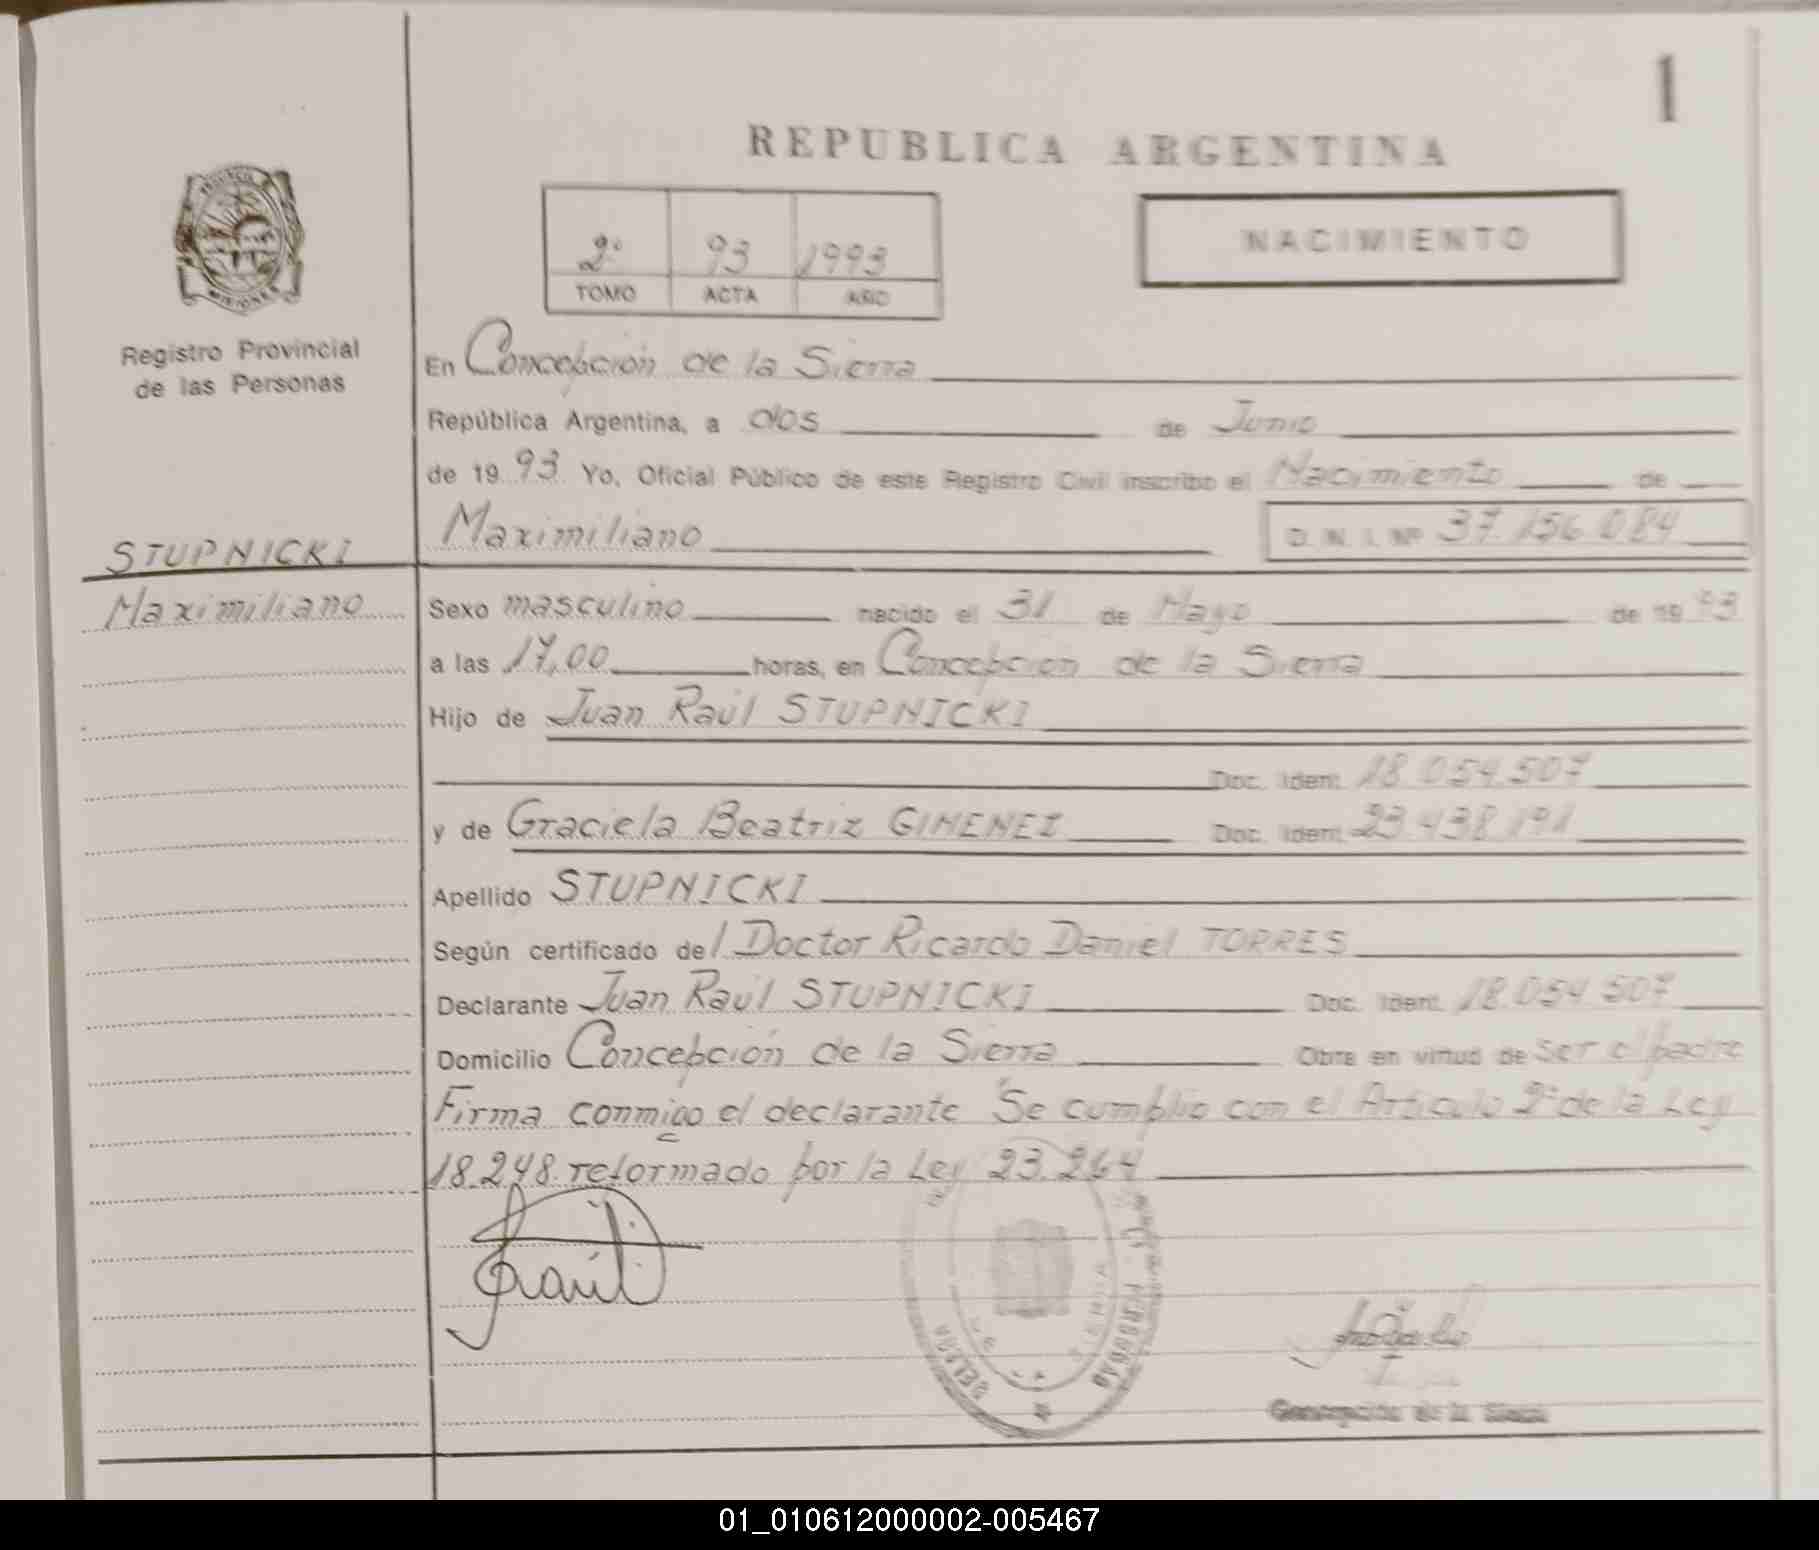 1
REPUBLICA ARGENTINA
PROVINCIA
MISIONES
Registro Provincial
de las Personas
2º 93 1993
TOMO ACTA AÑO
NACIMIENTO
En Concepción de la Sierra
República Argentina, a dos de Junio
de 19 93 Yo, Oficial Público de este Registro Civil inscribo el Nacimiento de
Maximiliano D. N. I. Nº 37.156.084
STUPNICKI
Maximiliano
Sexo masculino nacido el 31 de Mayo de 19 93
a las 17,00 horas, en Concepcion de la Sierra
Hijo de Juan Raúl STUPNICKI
Doc. Ident. 18.054.507
y de Graciela Beatriz GIMENEZ Doc. Ident. 23.438.191
Apellido STUPNICKI
Según certificado del Doctor Ricardo Daniel TORRES
Declarante Juan Raúl STUPNICKI Doc. Ident. 18.054.507
Domicilio Concepción de la Sierra Obra en virtud de ser el padre
Firma conmigo el declarante "Se cumplio con el Artículo 2º de la Ley
18.248 reformado por la Ley 23.264
Raúl
Concepción de la Sierra
01_010612000002-005467